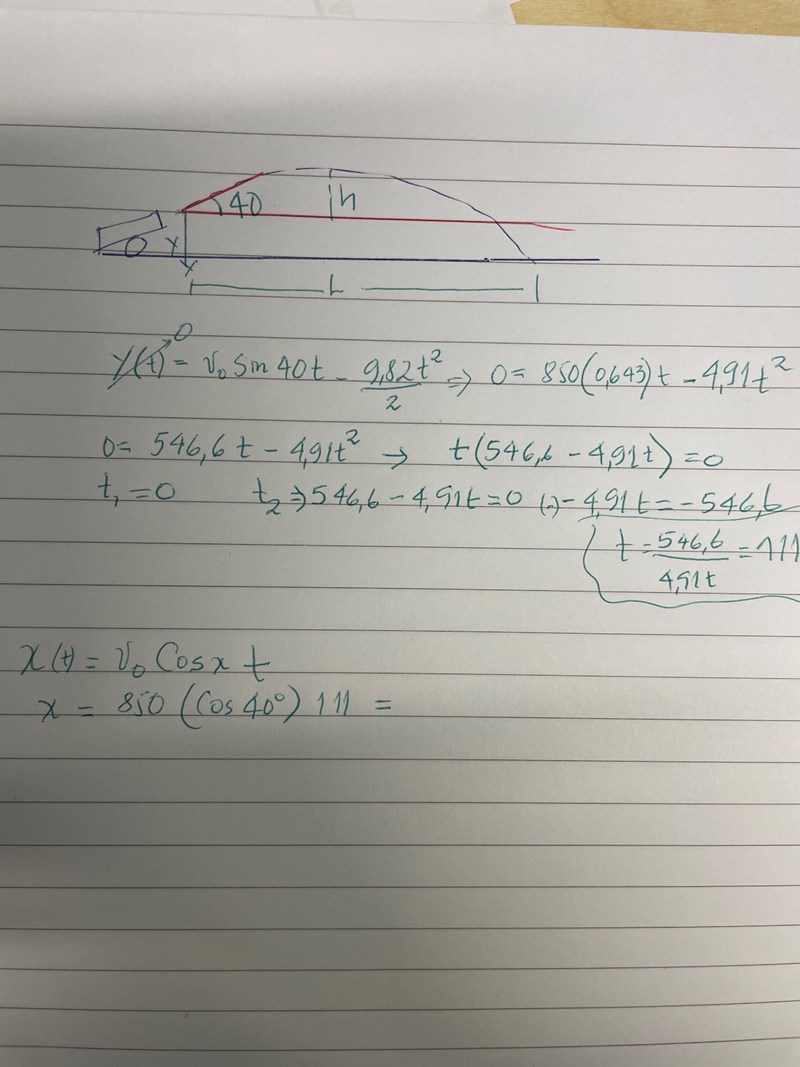 40
h
y
L
y(t)⁰ = v₀ Sin 40t - 9,82t²/2 ⇒ 0 = 850(0,643)t - 4,91t²
0 = 546,6t - 4,91t² → t(546,6 - 4,91t) = 0
t₁ = 0 t₂ ⇒ 546,6 - 4,91t = 0 (-) - 4,91t = - 546,6
t = 546,6/4,91t = 111
x(t) = v₀ Cosx t
x = 850 (Cos 40°) 111 =